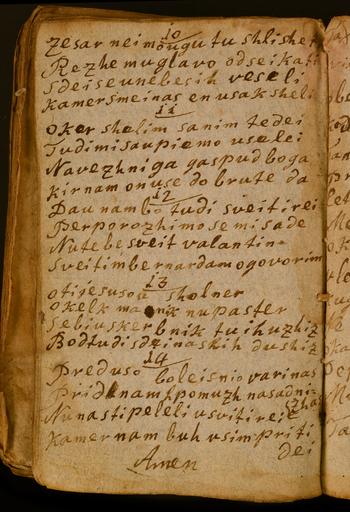 10
zesar neimougu tu shlisher
Rezhe muglavo odseikati
Sdei se unebesih veseli
kamersmeinas en usak sheli
11
oker shelim sanim tedei
Tudimisaupiemo uselei
Navezhniga gaspud boga
kirnam onuse dobrute da
12
Dau nam bo tudi sveitirei
Perporozhimo se mi sade
Nutebe sveit valantin
Sveitimbernardam ogovorim
13
otijesusou sholner
Okelk ma nik nu paster
Sebi uskerbnik tu ih uzhiz
Bodtudi sdei naskih dushiz
14
Preduso boleisnio varinas
Pridi knam hpomuzh nasadni
zhas
Nu nastipeleli usvitirei
kamer nam buh usim priti
dei
Amen